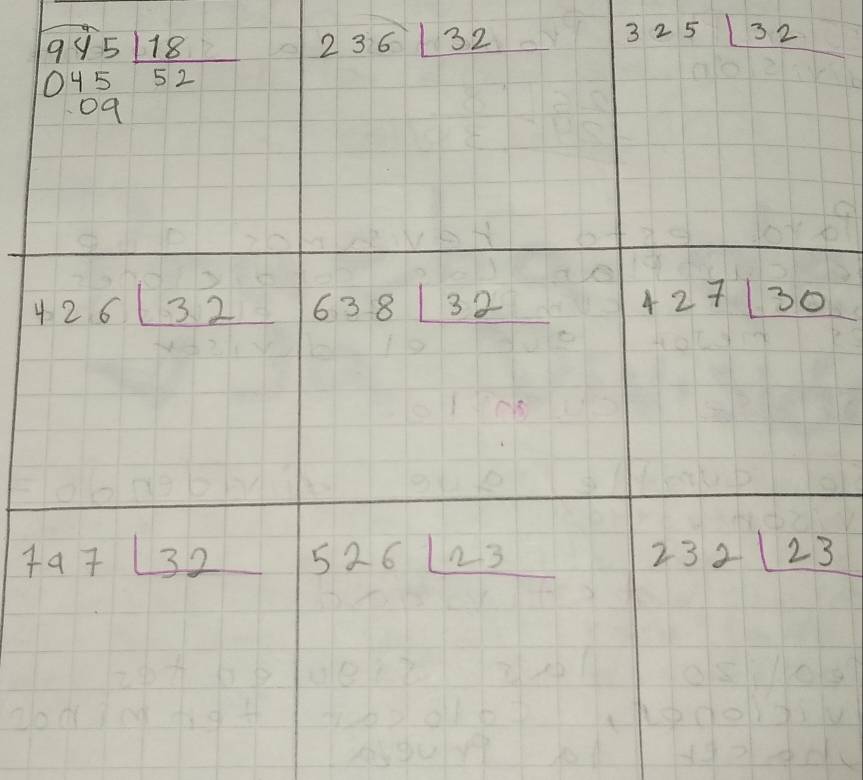 945 18
045 52
09
236 32
325 32
426 32
638 32
427 30
797 32
526 23
232 23